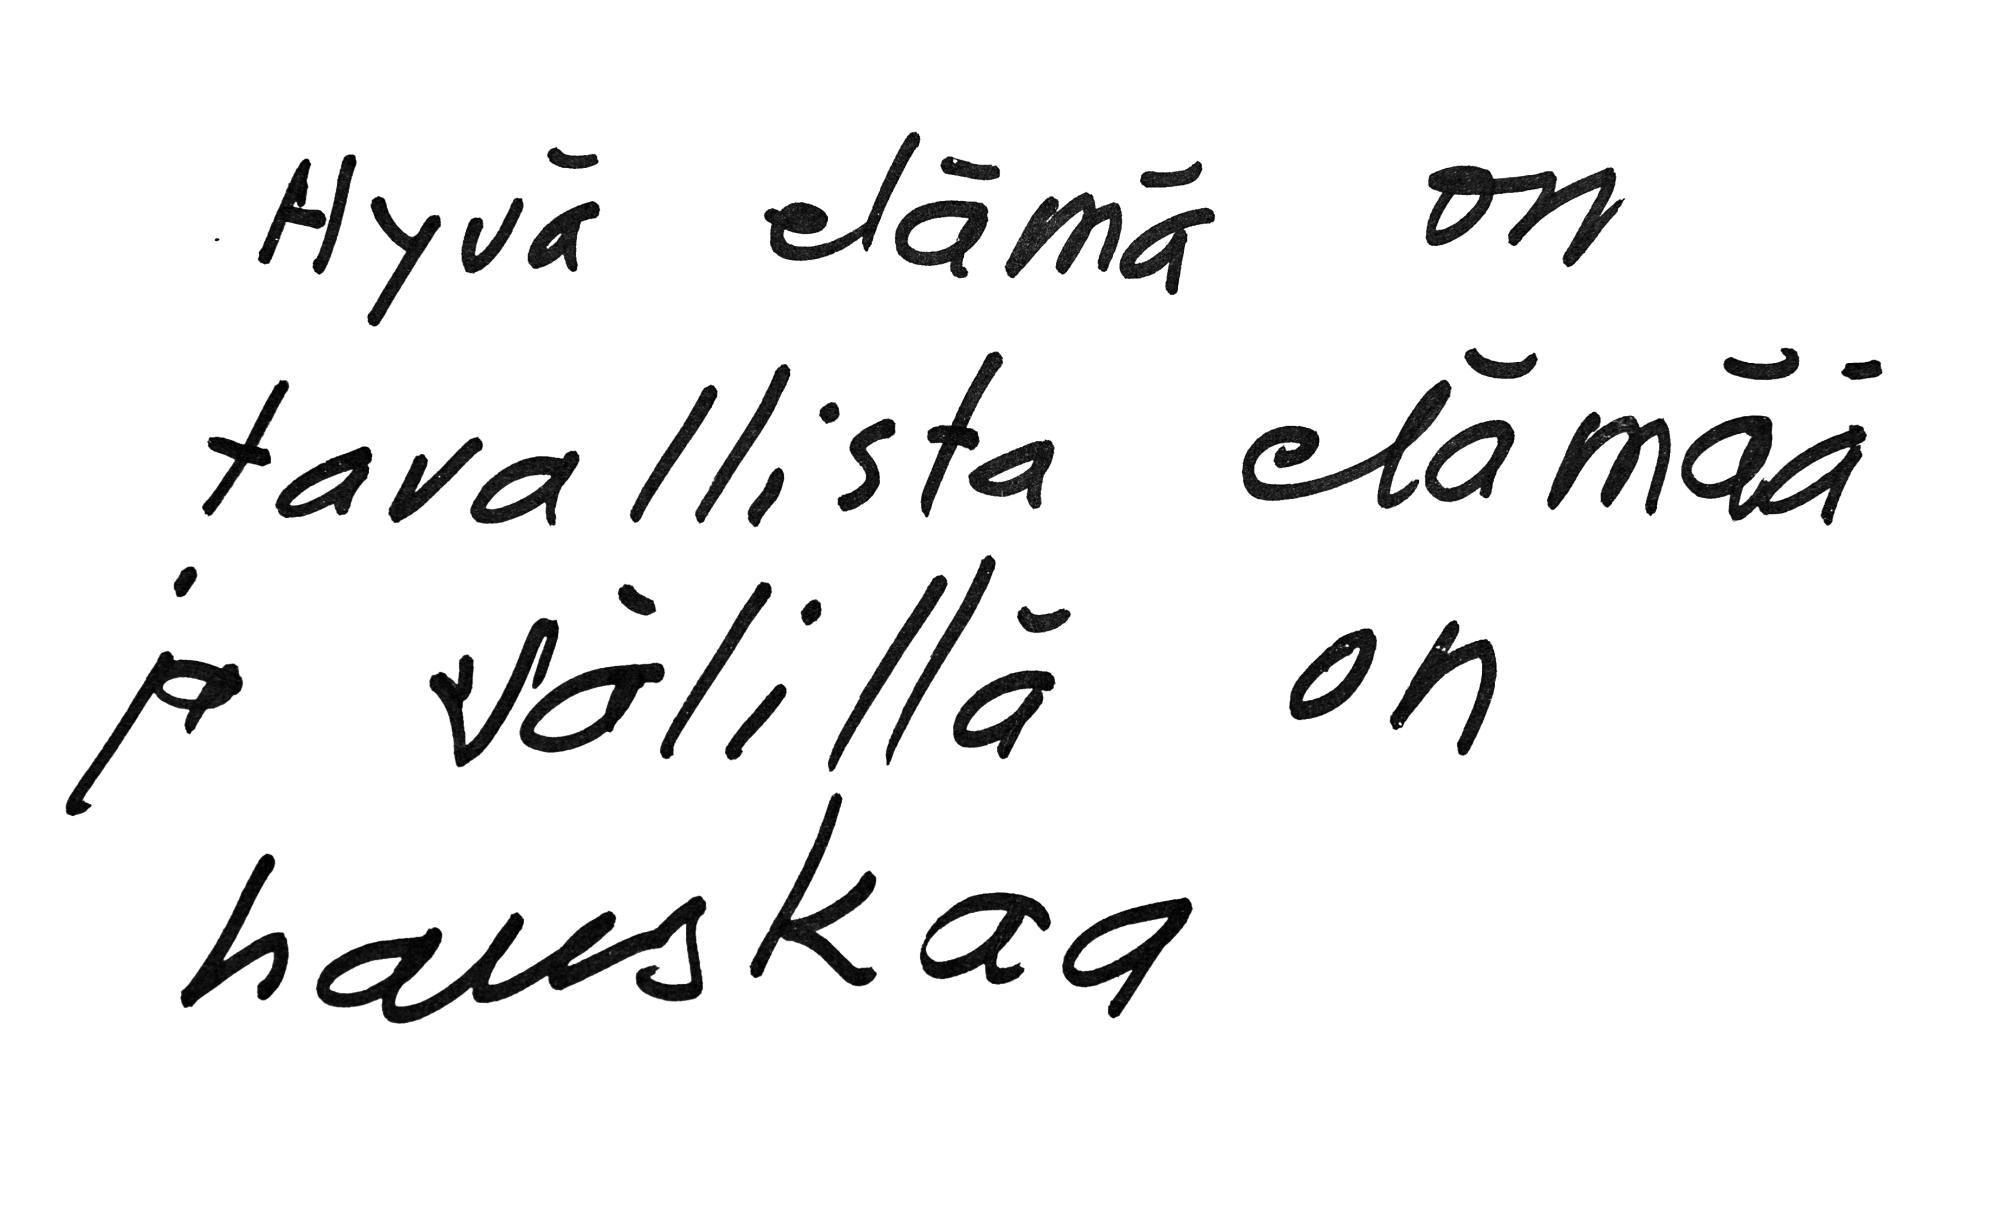 Hyvä elämä on
tavallista elämää
ja välillä on
hauskaa